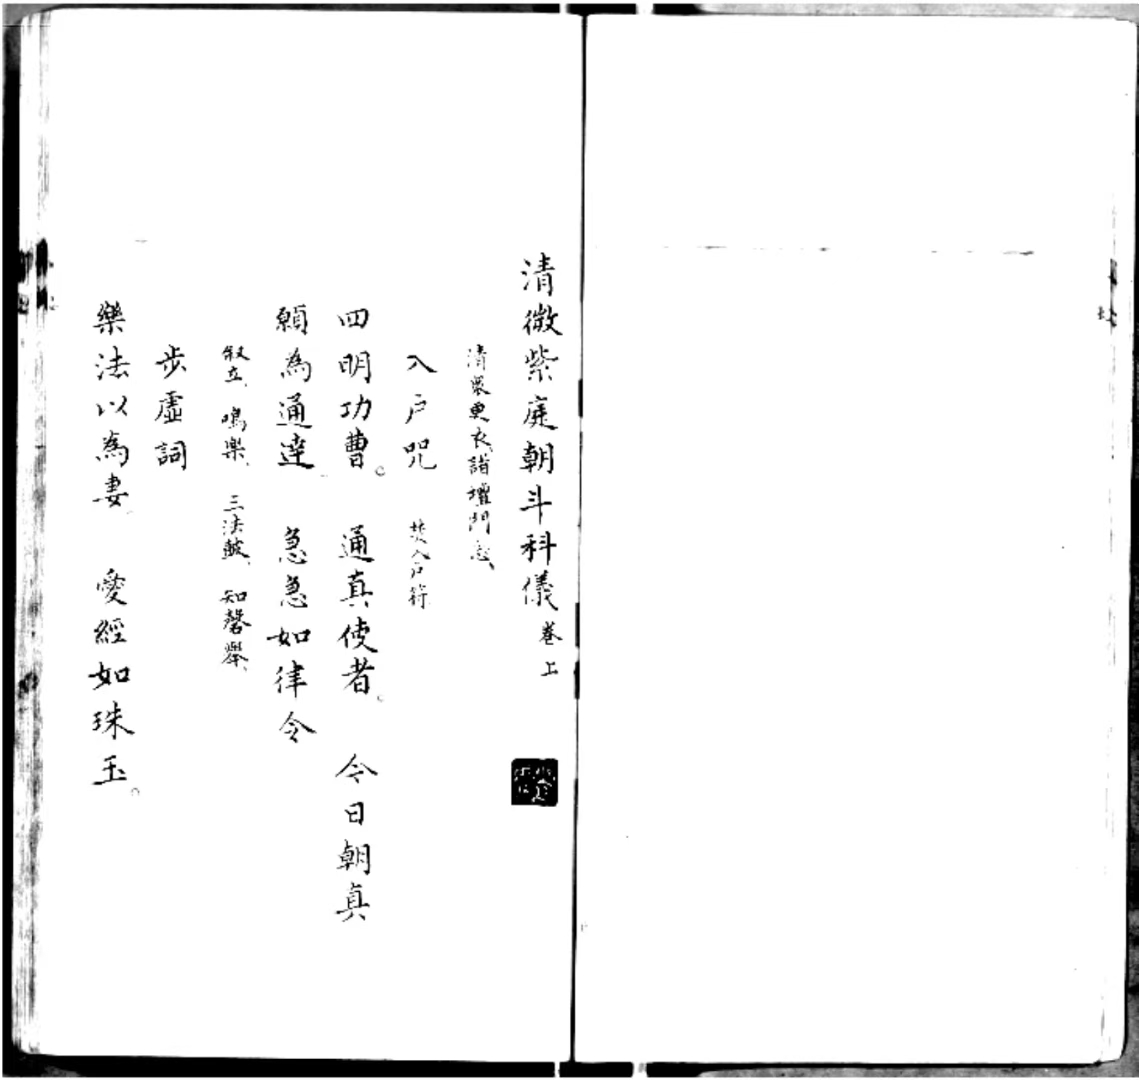 清微紫庭朝斗科儀 卷上
清衆更衣、詣壇門、
入戶咒 焚入戶符
四明功曹。 通真使者。 今日朝真
願為通達 急急如律令
叙立、 鳴樂、 三法鼓、 知磬舉、
步虛詞
樂法以為妻 愛經如珠玉。